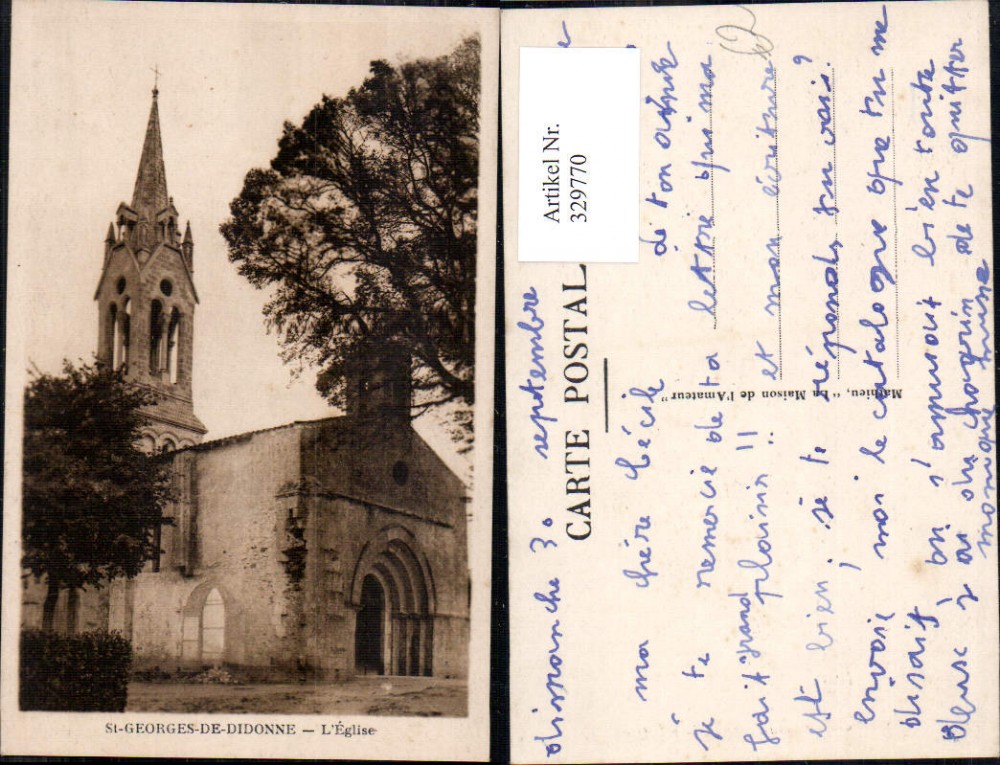 St-GEORGES-DE-DIDONNE — L'Église
Artikel Nr.
329770
CARTE POSTAL
Mathieu, "La Maison de l'Amateur"
dimanche 30 septembre
ma chère Cécile
je te remercie de ta lettre qui m'a
fait grand plaisir !! et mon écriture
est bien; si te réponds, tu vois?
envoie moi le catalogue que tu me
disais, on s'amusait bien toute
deux j'ai du chagrin de te quitter
monique